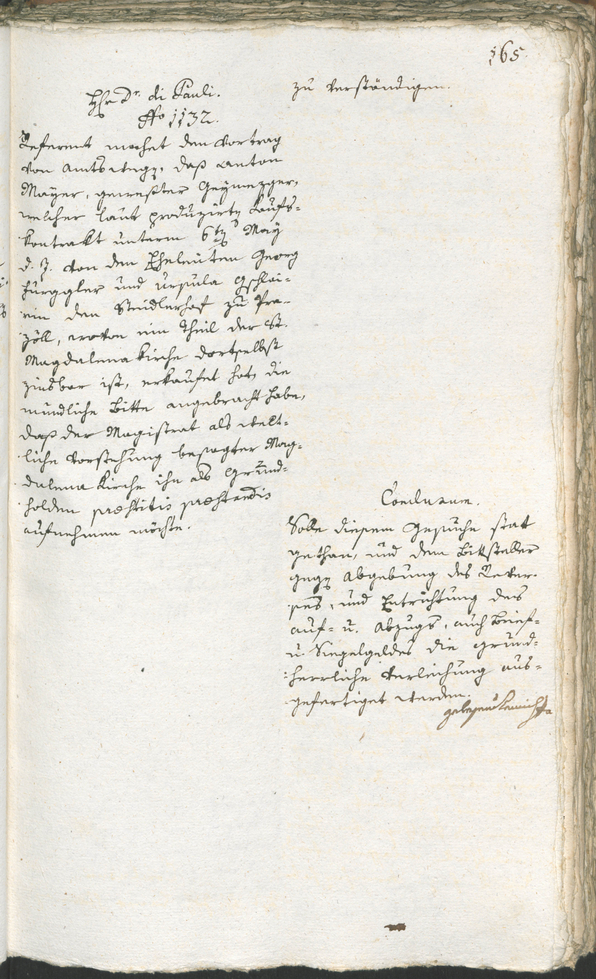 165.
zu verständigen.
Hr Dr. di Pauli.
No 1132.
Referent machet den Vortrag
von Amtswegen, daß Anton
Mayer, gewester
welcher laut produzirten Kaufs-
kontrakt unterm 6ten May
d. J. von den Eheleuten Georg
und Ursula Gschlei-
ein den Steidlerhof zu Pra-
zöll, wovon ein Theil der St.
Magdalena Kirche dortselbst
zinsbar ist, erkaufet hat, die
mündliche Bitte angebracht habe,
daß der Magistrat als welt-
liche Vorstehung besagter Mag-
dalena Kirche ihn als Grund-
holden præstitis præstandis
aufnehmen möchte.
Conclusum.
Solle diesem Gesuche statt
gethan, und dem Bittsteller
gegen Abgebung des Rever-
ses, und Entrichtung des
Auf- u. Abzugs, auch Brief-
u. Siegelgeldes die grund-
herrliche Verleihung aus-
gefertiget werden.